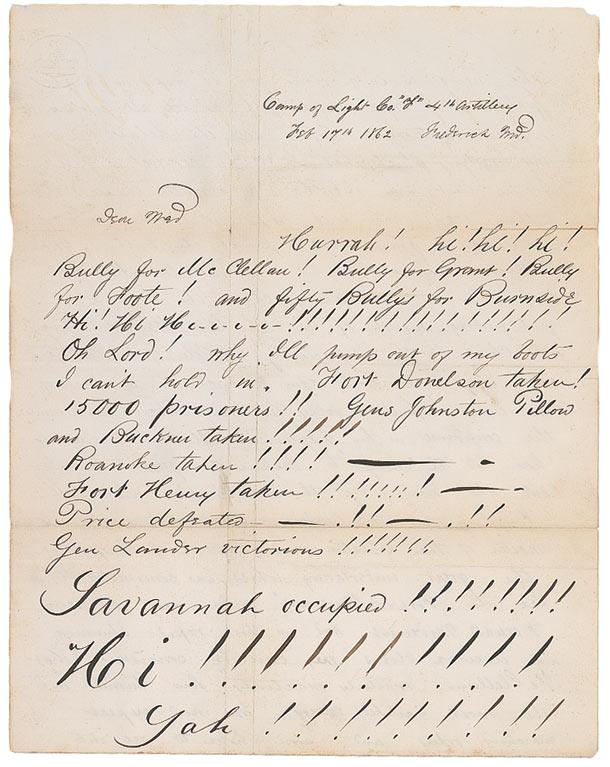 Camp of Light Co. "F" 4th Artillery
Feb 17th 1862 Frederick Md.
Dear Ward
Hurrah! hi! hi! hi!
Bully for McClellan! Bully for Grant! Bully
for Foote! and fifty Bully's for Burnside
Hi! Hi Hi-i-i-i-!!!!!!!!!!!!!!!!!
Oh Lord! why I'll jump out of my boots
I can't hold in. Fort Donelson taken!
15000 prisoners!! Gens Johnston Pillow
and Buckner taken!!!!!!
Roanoke taken!!!!
Fort Henry taken!!!!!!!
Price defeated — .!! — .!!
Gen Lander victorious!!!!!!!
Savannah occupied!!!!!!!!
Hi!!!!!!!!!!!
Yah!!!!!!!!!!